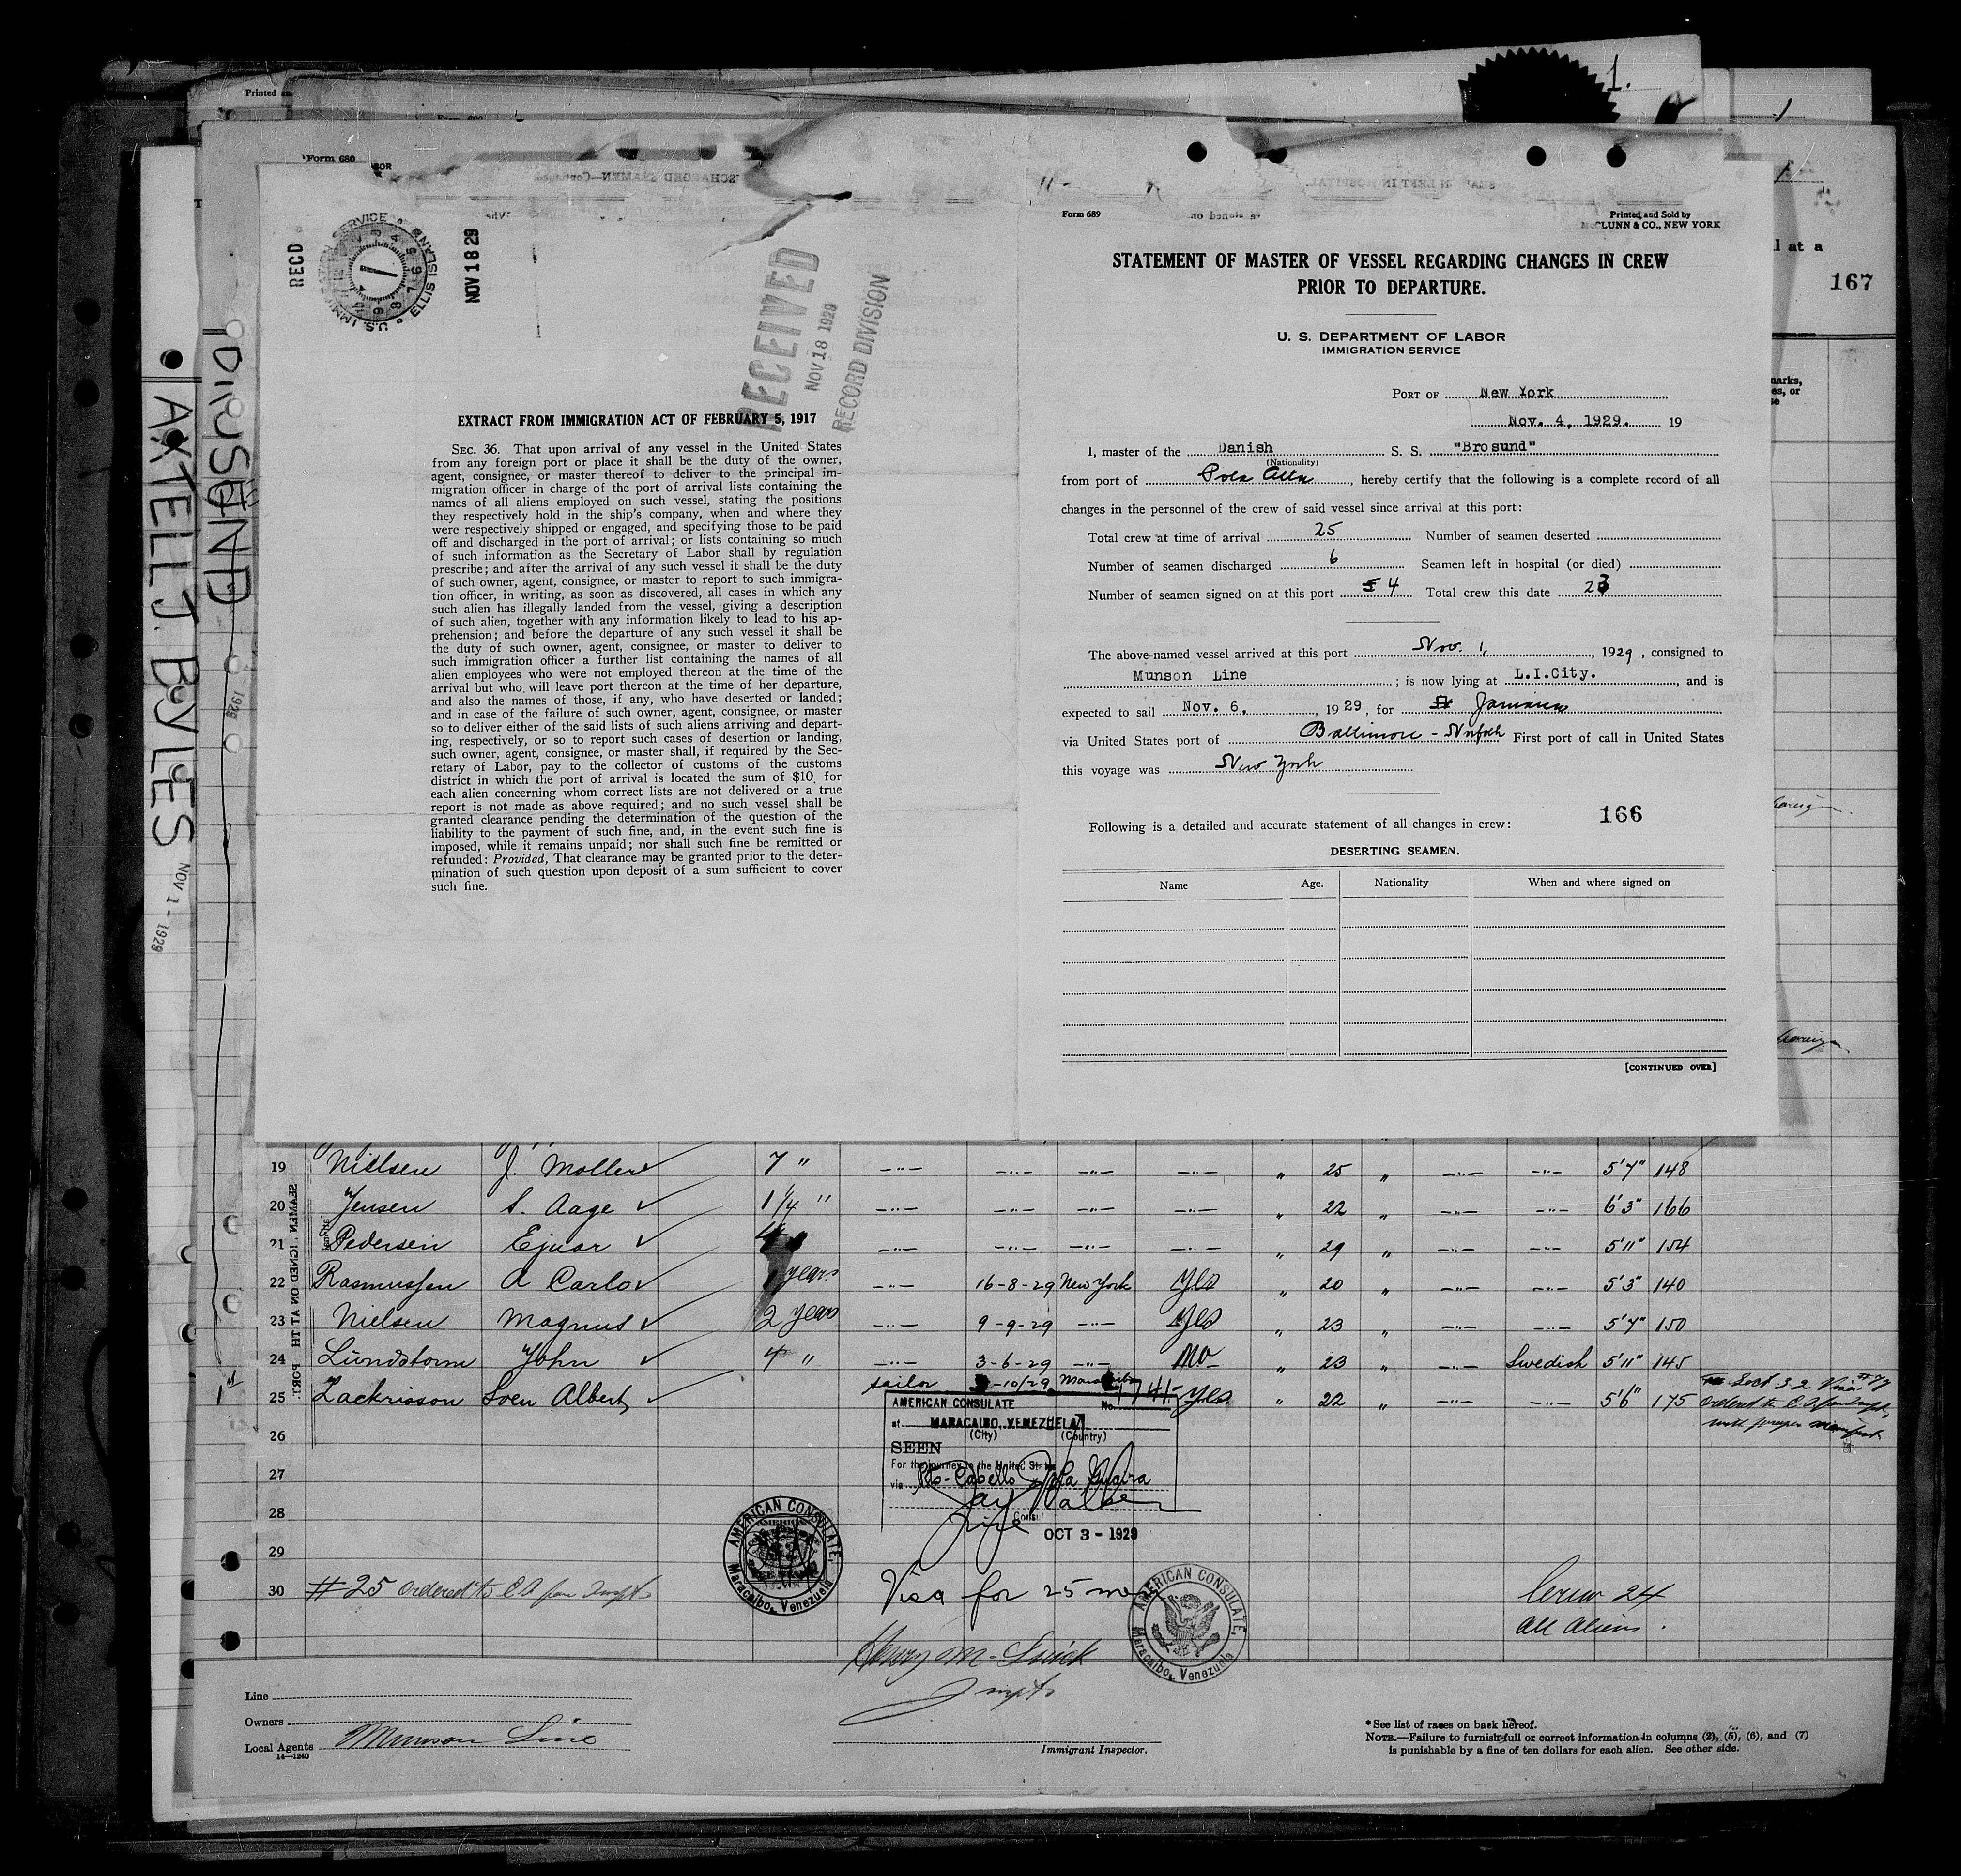 Printed
1.
Form 680
167
RECD
U.S. IMMIGRATION SERVICE ELLIS ISLAND
NOV 18 29
RECEIVED
NOV 18 1929
RECORD DIVISION
BROSUND
1929
AXTELL J. BYLES
NOV 1 - 1929
EXTRACT FROM IMMIGRATION ACT OF FEBRUARY 5, 1917
SEC. 36. That upon arrival of any vessel in the United States
from any foreign port or place it shall be the duty of the owner,
agent, consignee, or master thereof to deliver to the principal im-
migration officer in charge of the port of arrival lists containing the
names of all aliens employed on such vessel, stating the positions
they respectively hold in the ship's company, when and where they
were respectively shipped or engaged, and specifying those to be paid
off and discharged in the port of arrival; or lists containing so much
of such information as the Secretary of Labor shall by regulation
prescribe; and after the arrival of any such vessel it shall be the duty
of such owner, agent, consignee, or master to report to such immigra-
tion officer, in writing, as soon as discovered, all cases in which any
such alien has illegally landed from the vessel, giving a description
of such alien, together with any information likely to lead to his ap-
prehension; and before the departure of any such vessel it shall be
the duty of such owner, agent, consignee, or master to deliver to
such immigration officer a further list containing the names of all
alien employees who were not employed thereon at the time of the
arrival but who will leave port thereon at the time of her departure,
and also the names of those, if any, who have deserted or landed;
and in case of the failure of such owner, agent, consignee, or master
so to deliver either of the said lists of such aliens arriving and depart-
ing, respectively, or so to report such cases of desertion or landing,
such owner, agent, consignee, or master shall, if required by the Sec-
retary of Labor, pay to the collector of customs of the customs
district in which the port of arrival is located the sum of $10 for
each alien concerning whom correct lists are not delivered or a true
report is not made as above required; and no such vessel shall be
granted clearance pending the determination of the question of the
liability to the payment of such fine, and, in the event such fine is
imposed, while it remains unpaid; nor shall such fine be remitted or
refunded: Provided, That clearance may be granted prior to the deter-
mination of such question upon deposit of a sum sufficient to cover
such fine.
Form 689
Printed and Sold by
McCLUNN & CO., NEW YORK
STATEMENT OF MASTER OF VESSEL REGARDING CHANGES IN CREW
PRIOR TO DEPARTURE.
U. S. DEPARTMENT OF LABOR
IMMIGRATION SERVICE
PORT OF New York
Nov. 4, 1929. 19
I, master of the Danish S. S. "Brosund"
(Nationality)
from port of , hereby certify that the following is a complete record of all
changes in the personnel of the crew of said vessel since arrival at this port:
Total crew at time of arrival 25 Number of seamen deserted
Number of seamen discharged 6 Seamen left in hospital (or died)
Number of seamen signed on at this port 4 Total crew this date 23
The above-named vessel arrived at this port Nov. 1, 1929, consigned to
Munson Line ; is now lying at L.I.City. , and is
expected to sail Nov. 6. , 1929, for Jamaica
via United States port of Baltimore - Norfolk First port of call in United States
this voyage was New York
166
Following is a detailed and accurate statement of all changes in crew:
DESERTING SEAMEN.
Name Age. Nationality When and where signed on
[CONTINUED OVER]
19 Nielsen J. Moller 7 " —"— —"— —"— —"— " 25 " —"— —"— 5'7" 148
20 Jensen S. Aage 1 1/4 " —"— —"— —"— —"— " 22 " —"— —"— 6'3" 166
21 Pedersen Ejnar —"— —"— —"— —"— " 29 " —"— —"— 5'11" 154
22 Rasmussen A Carlo 1 years —"— 16-8-29 New York Yes " 20 " —"— —"— 5'3" 140
23 Nielsen Magnus 2 years —"— 9-9-29 —"— Yes " 23 " —"— —"— 5'7" 150
24 Lundstorm John 4 " —"— 3-6-29 —"— No " 23 " —"— Swedish 5'11" 145
25 Zackrisson Sven Albert sailor -10/29 Yes " 22 " 5'6" 175
SEAMEN SIGNED ON AT TH PORT.
AMERICAN CONSULATE No. 1741
at MARACAIBO, VENEZUELA
(City) (Country)
SEEN
For the journey to the United States
via Pto-Cabello La Guaira
Jay Walker
Vice Consul
OCT 3 - 1929
26
27
28
29
30 # 25 ordered to C.A. for Inspt
AMERICAN CONSULATE, Maracaibo, Venezuela
Visa for 25 men
AMERICAN CONSULATE, Maracaibo, Venezuela
Crew 24
All Aliens.
Line
Owners
Local Agents Munson Line
14—1240
Immigrant Inspector.
*See list of races on back hereof.
NOTE.—Failure to furnish full or correct information in columns (2), (5), (6), and (7)
is punishable by a fine of ten dollars for each alien. See other side.